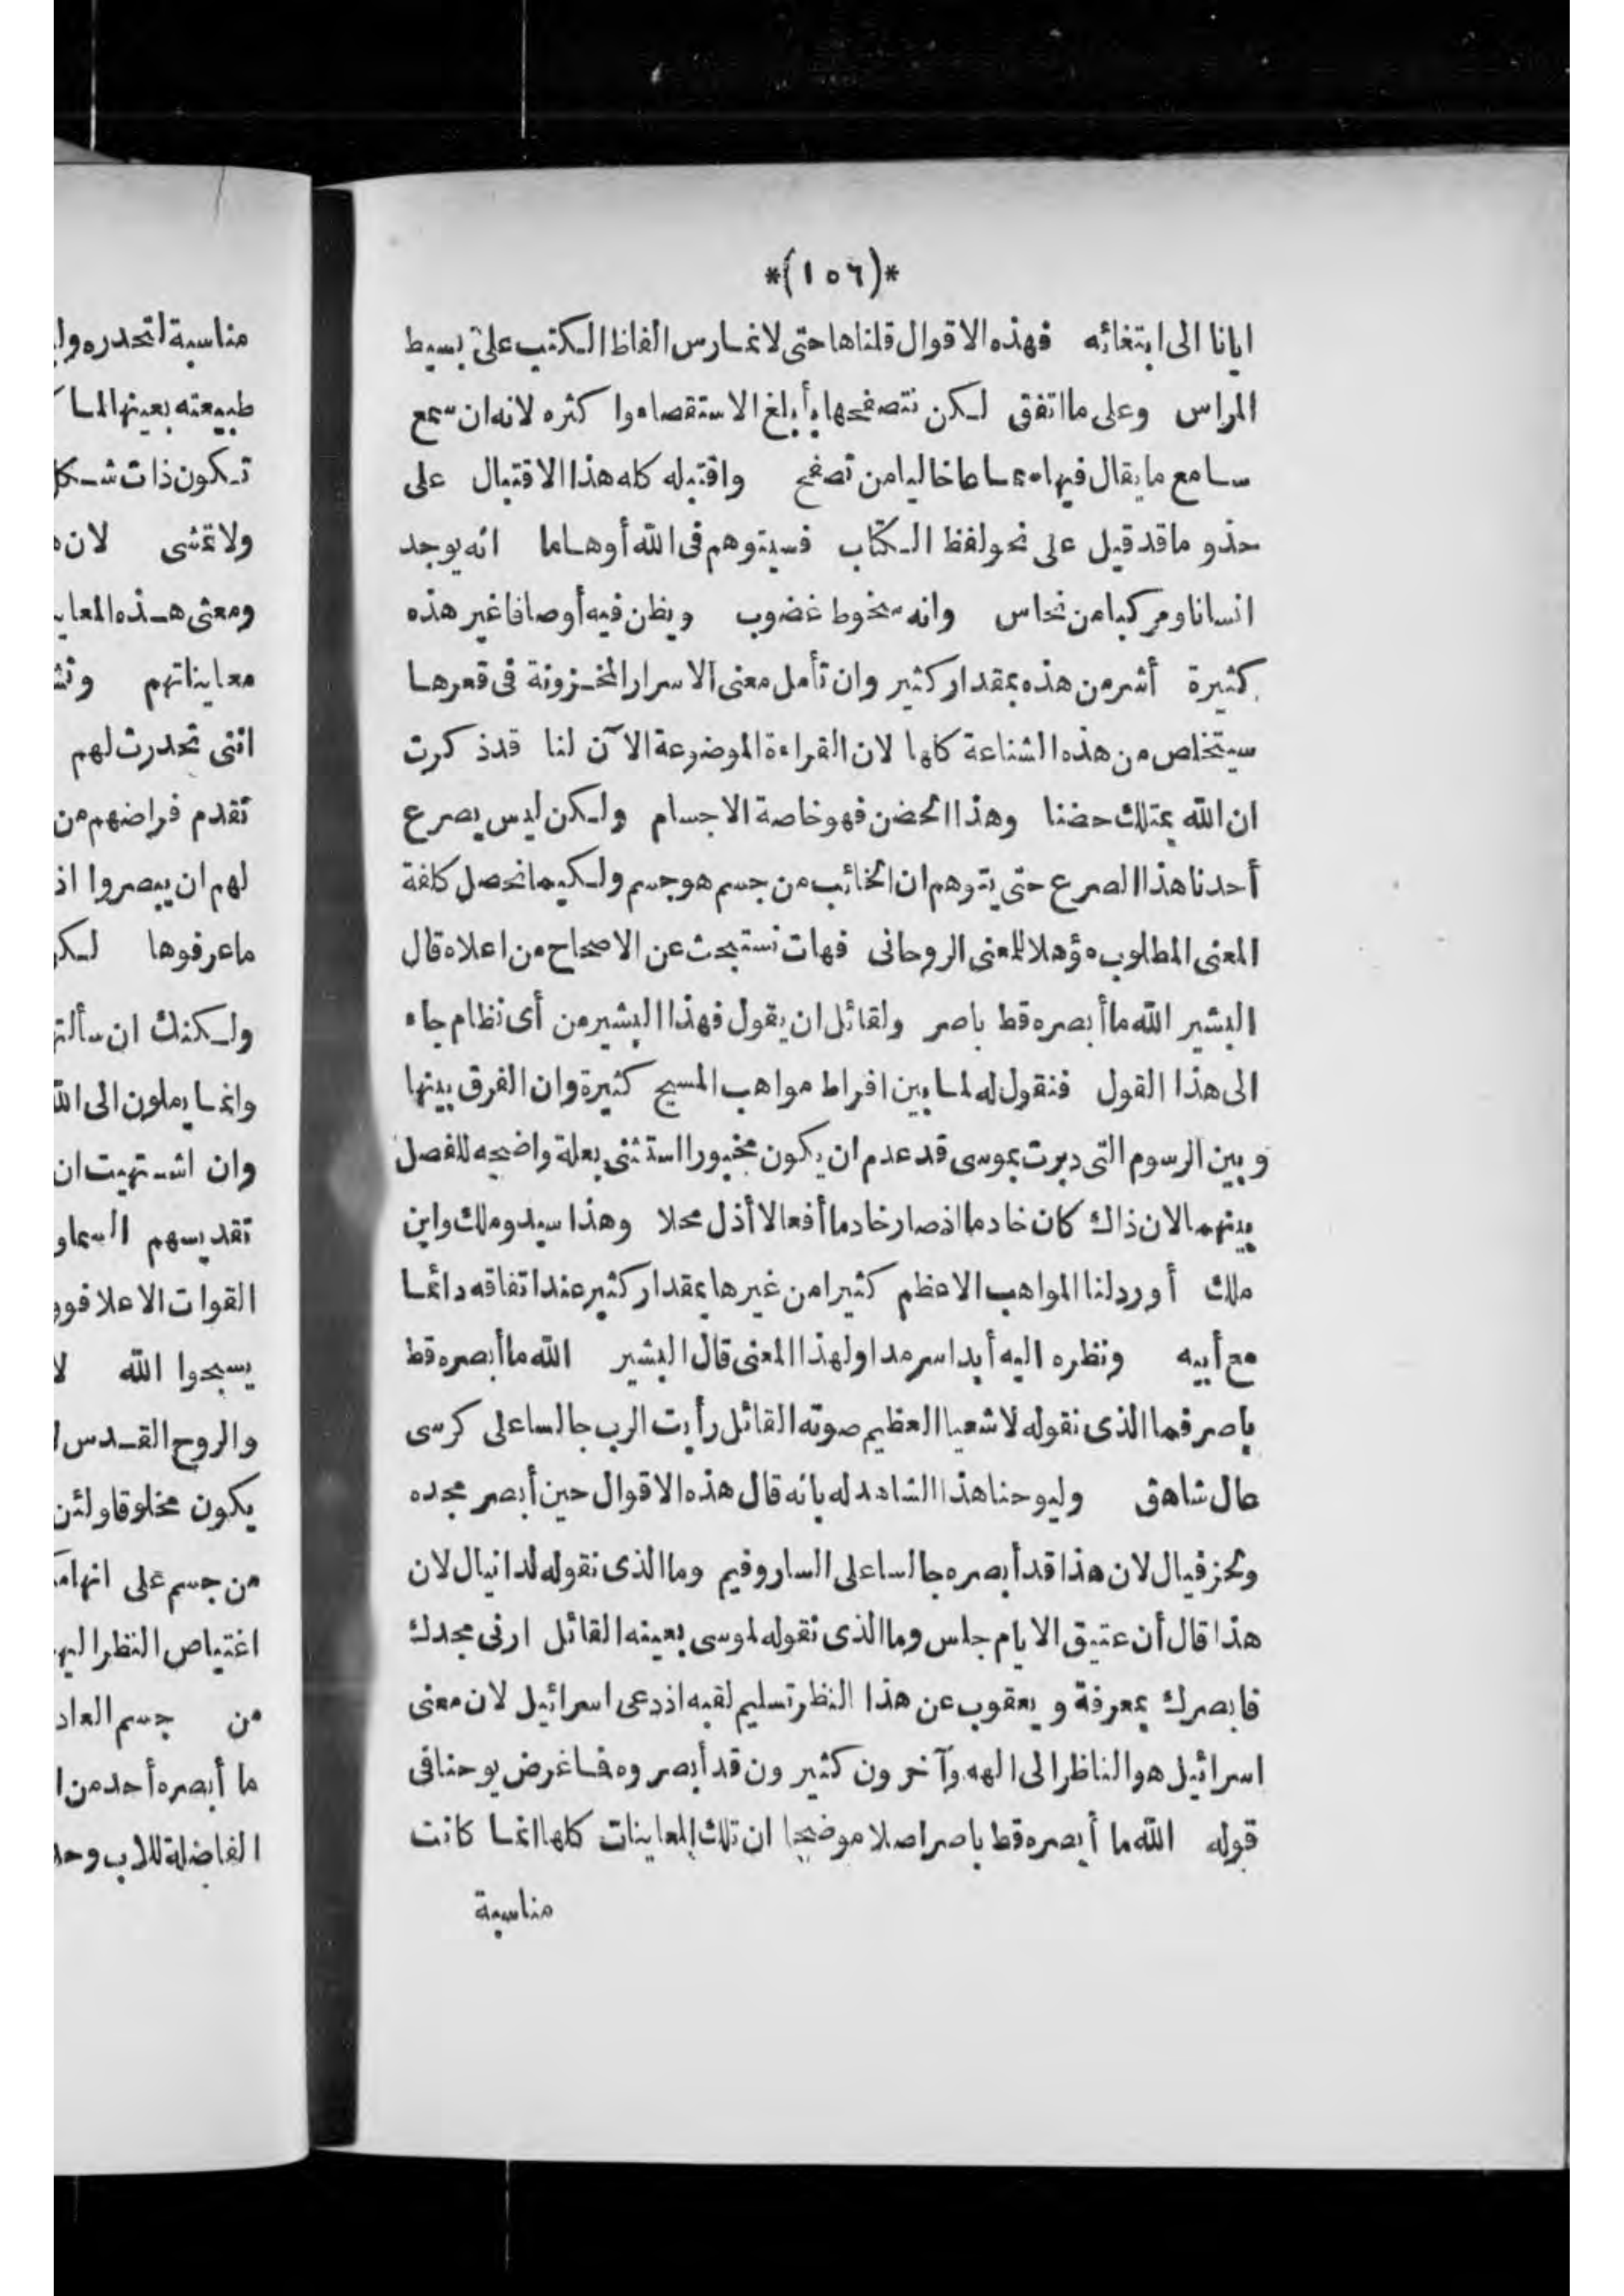 *(١٥٦)*
ايانا الى ابتغائه فهذه الاقوال قلناها حتى لا نمارس الفاظ الكتب على بسيط
المراس وعلى ما اتفق لكن نتصفحها بأبلغ الاستقصاء وا كثره لانه ان سمع
سامع ما يقال فيها سماعا خاليا من تصفح واقتبله كله هذا الاقتبال على
حذو ما قد قيل على نحو لفظ الكتاب فسيتوهم فى الله أوهاما انه يوجد
انسانا ومركبا من نحاس وانه سخوط غضوب ويظن فيه أوصافا غير هذه
كثيرة أشر من هذه بمقدار كثير وان تأمل معنى الاسرار المخزونة فى قعرها
سيتخلص من هذه الشناعة كلها لان القراءة الموضوعة الآن لنا قد ذكرت
ان الله يمتلك حضنا وهذا الحضن فهو خاصة الاجسام ولكن ليس يصرع
أحدنا هذا الصرع حتى يتوهم ان الخائب من جسم هو جسم ولكيما نحصل كافة
المعنى المطلوب مؤهلا للمعنى الروحانى فهات نستبحث عن الاصحاح من اعلاه قال
البشير الله ما أبصره قط باصر ولقائل ان يقول فهذا البشير من أى نظام جاء
الى هذا القول فنقول له لما بين افراط مواهب المسيح كثيرة وان الفرق بينها
وبين الرسوم التى دبرت بموسى قد عدم ان يكون مخبورا استثنى بعلة واضحه للفصل
بينهما لان ذاك كان خادما اذ صار خادما أفعالا أذل محلا وهذا سيد وملك وابن
ملك أورد لنا المواهب الاعظم كثيرا من غيرها بمقدار كثير عند اتفاقه دائما
مع أبيه ونظره اليه أبدا سرمدا ولهذا المعنى قال البشير الله ما أبصره قط
باصر فما الذى نقوله لاشعيا العظيم صوته القائل رأيت الرب جالسا على كرسى
عال شاهق وليوحنا هذا الشاهد له بانه قال هذه الاقوال حين أبصر مجده
وحزفيال لان هذا قد أبصره جالسا على الساروفيم وما الذى نقوله لدانيال لان
هذا قال أن عتيق الايام جلس وما الذى نقوله لموسى بعينه القائل ارنى مجدك
فابصرك بمعرفة ويعقوب عن هذا النظر تسليم لقبه اذ دعى اسرائيل لان معنى
اسرائيل هو الناظر الى الهه وآخرون كثيرون قد أبصروه فما غرض يوحنا فى
قوله الله ما أبصره قط باصر اصلا موضحا ان تلك المعاينات كلها انما كانت
مناسبة
مناسبة لتحدره
طبيعته بعينها لما
تكون ذات شكل
ولا تمشى لان
ومعنى هذه
معايناتهم
اننى تحدرت لهم
تقدم فراضهم من
لهم ان يبصروا اذ
ماعرفوها
ولكنك ان
وانما يملون الى الله
وان اشتهيت ان
تقديسهم
القوات الاعلا
يسبحوا الله لا
والروح القدس
يكون مخلوقا ولئن
من جسم على
اغتياص النظر
من جسم
ما أبصره أحد من
الفاضلة للاب